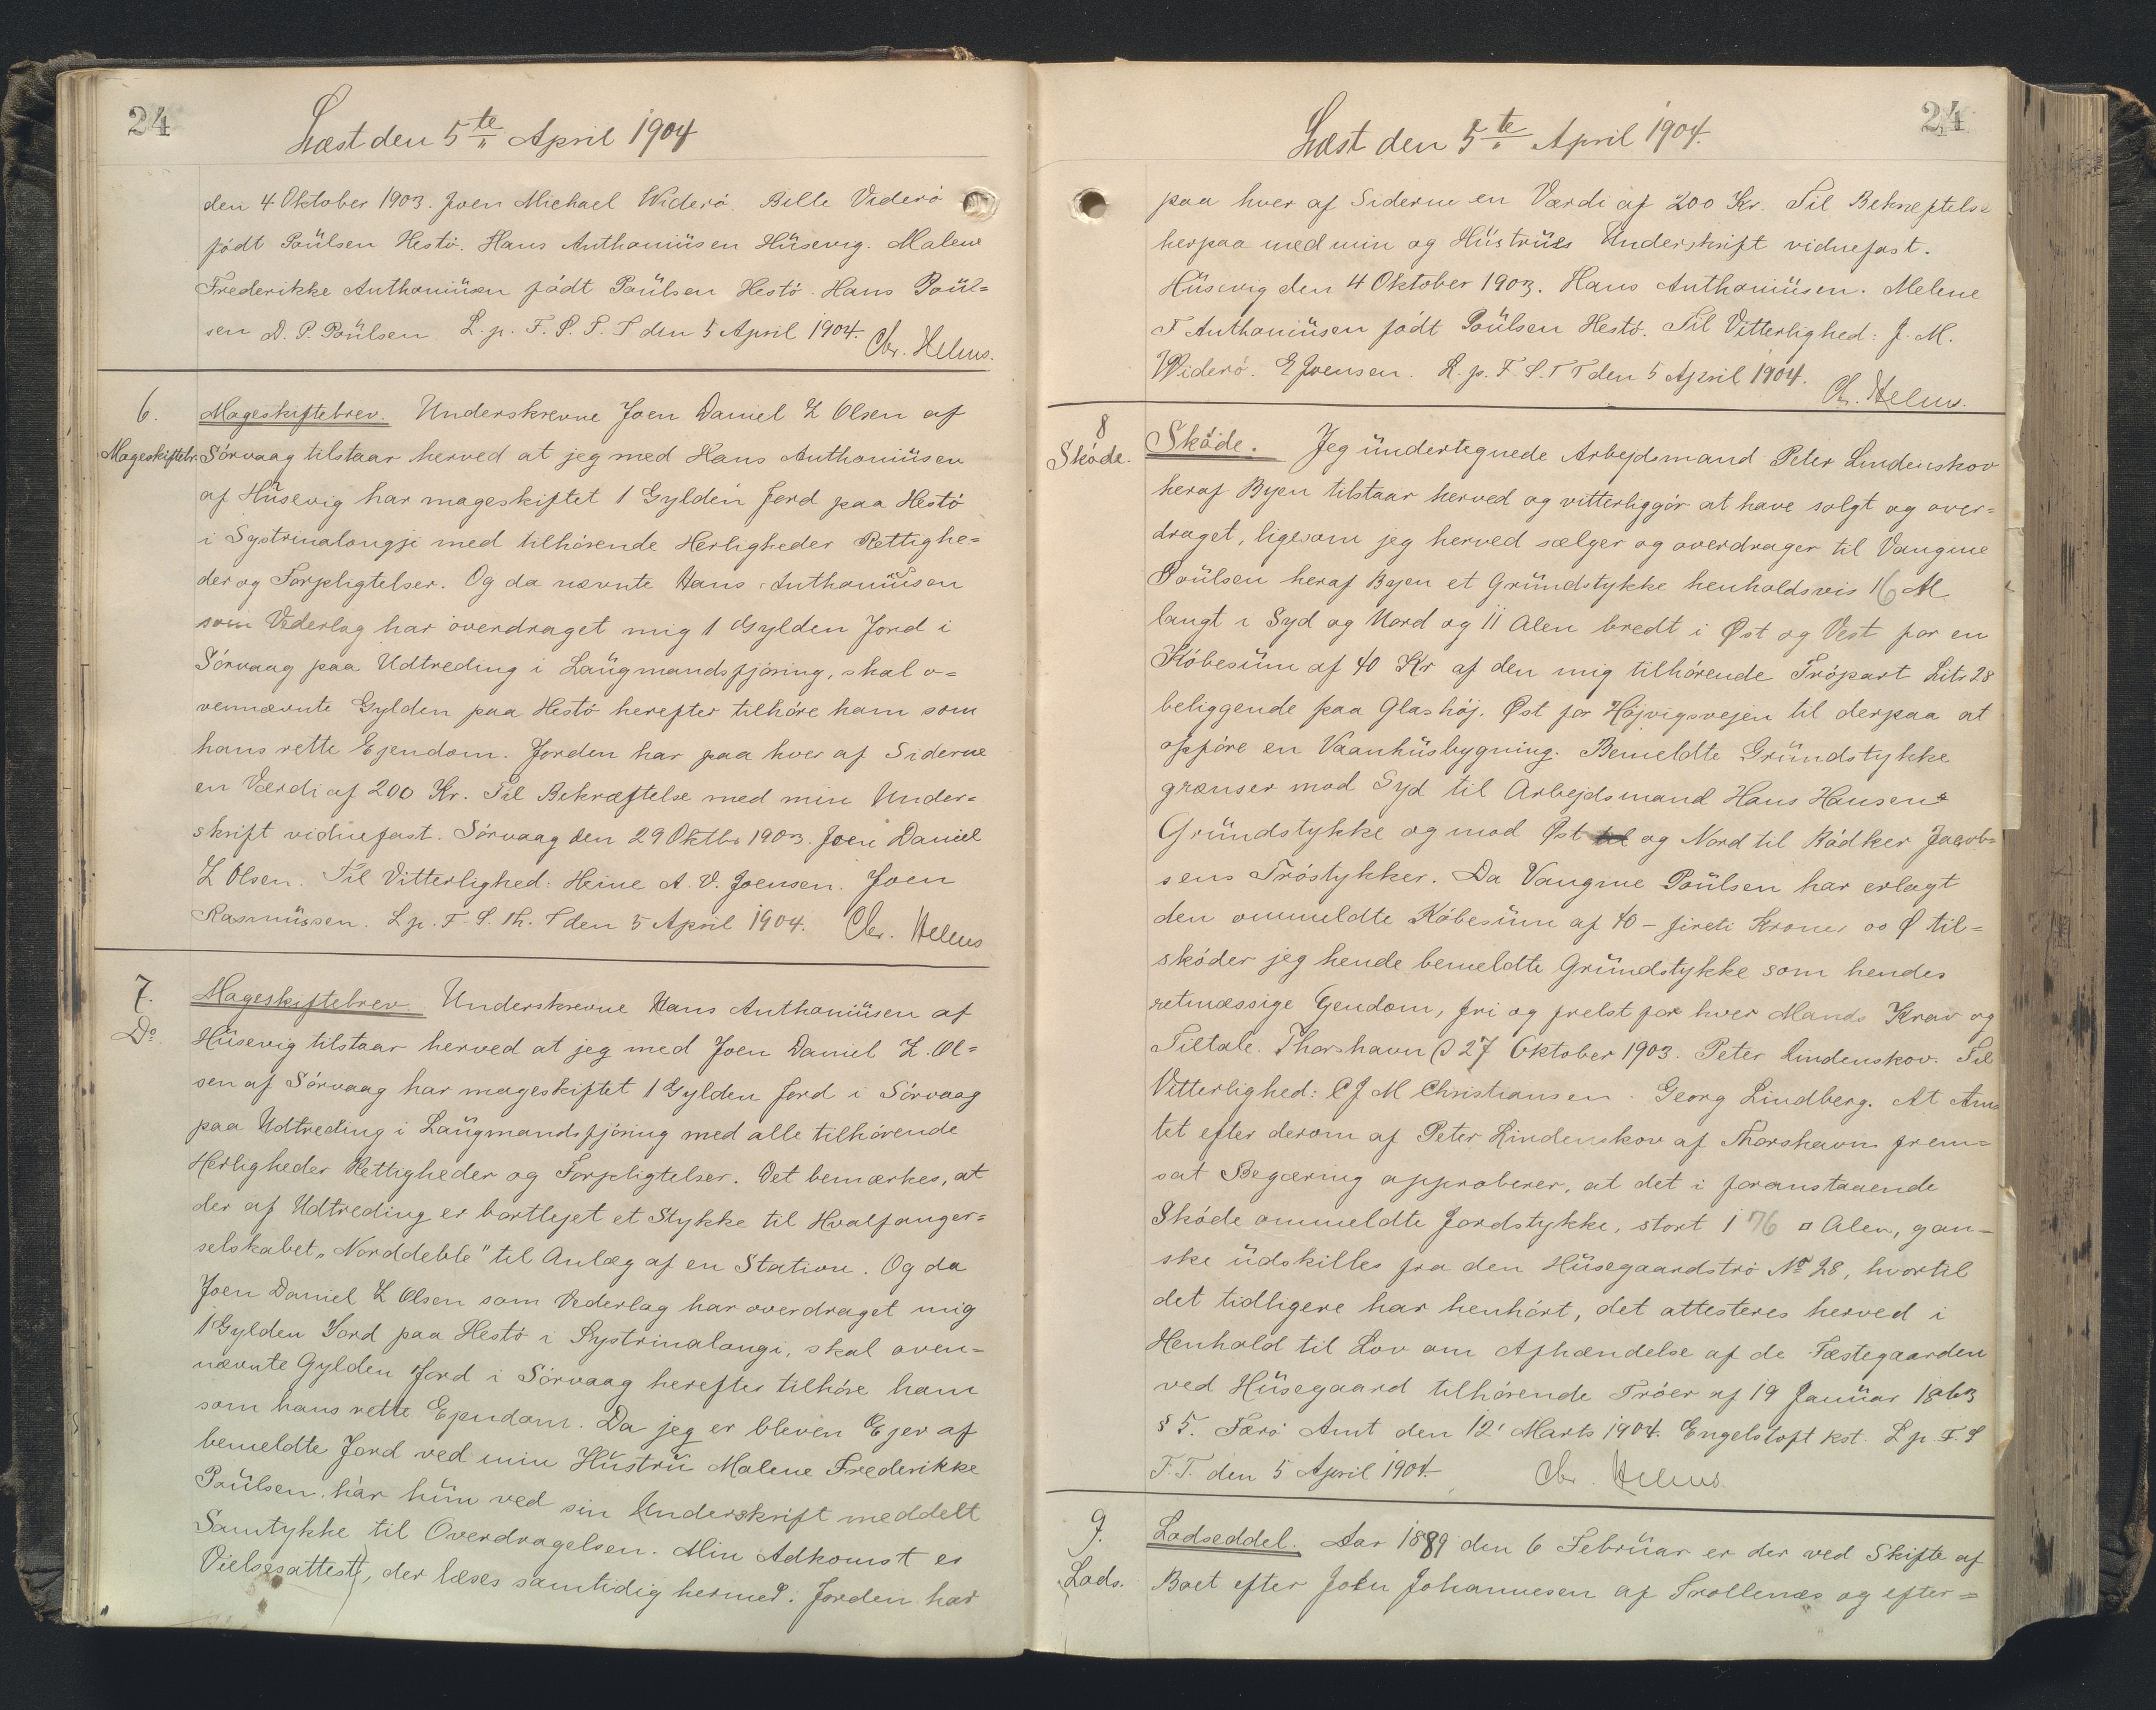 24
Læst den 5te April 1904
den 4 Oktober 1903. Joen Michael Widerö. Bille Viderö
födt Poülsen Hestö. Hans Anthoniüsen Hüsevig. Malene
Frederikke Anthoniüsen födt Poülsen Hestö. Hans Poül=
sen D. P. Poülsen. L. p. F. S. T. T den 5 April 1904. Chr. Helms.
6. Mageskiftebrev. Underskrevne Joen Daniel Z Olsen af
Mageskiftebr. Sörvaag tilstaar herved at jeg med Hans Anthoniüsen
af Hüsevig har mageskiftet 1 Gylden Jord paa Hestö
i Systrinalougji med tilhörende Herligheder Rettighe=
der og Forpligtelser. Og da nævnte Hans Anthoniüsen
som Vederlag har overdraget mig 1 Gylden Jord i
Sörvaag paa Udtreding i Laügmandsfjöring, skal o=
vennævnte Gylden paa Hestö herefter tilhöre ham som
hans rette Ejendom. Jorden har paa hver af Siderne
en Værdi af 200 Kr. Til Bekræftelse med min Under=
skrift vidnefast. Sörvaag den 29 Oktbr 1903. Joen Daniel
Z Olsen. Til Vitterlighed: Heine A. V. Joensen. Joen
Rasmüssen. L p. F. S. Th. T den 5 April 1904. Chr. Helms
7. Mageskiftebrev. Underskrevne Hans Anthoniüsen af
Do. Hüsevig tilstaar herved at jeg med Joen Daniel Z. Ol=
sen af Sörvaag har mageskiftet 1 Gylden Jord i Sörvaag
paa Udtreding i Laügmandsfjöring med alle tilhörende
Herligheder Rettigheder og Forpligtelser. Det bemærkes, at
der af Udtreding er bortlejet et Stykke til Hvalfanger=
selskabet „Norddeble" til Anlæg af en Station. Og da
Joen Daniel Z Olsen som Vederlag har overdraget mig
1 Gylden Jord paa Hestö i Systrinalougi, skal oven=
nævnte Gylden Jord i Sörvaag herefter tilhöre ham
som hans rette Ejendom. Da jeg er bleven Ejer af
bemeldte Jord ved min Hüstrü Malene Frederikke
Poülsen har hün ved sin Underskrift meddelt
Samtykke til Overdragelsen. Min Adkomst er
Vielsesattest, der læses samtidig hermed. Jorden har
24
Læst den 5te April 1904.
paa hver af Siderne en Værdi af 200 Kr. Til Bekræftelse
herpaa med min og Hüstrües Underskrift vidnefast.
Hüsevig den 4 Oktober 1903. Hans Anthoniüsen. Melene
F Anthoniüsen födt Poülsen Hestö. Til Vitterlighed: J. M.
Widerö. E Joensen. L. p. F. S. T T den 5 April 1904. Ch. Helms.
8 Sköde. Jeg ündertegnede Arbejdsmand Peter Lindenskov
Sköde. heraf Byen tilstaar herved og vitterliggör at have solgt og over=
draget, ligesom jeg herved sælger og overdrager til Vaugine
Poülsen heraf Byen et Gründstykke henholdsvis 16 Al
langt i Syd og Nord og 11 Alen bredt i Øst og Vest for en
Köbesüm af 40 Kr af den mig tilhörende Tröpart Litr 28
beliggende paa Glashöj. Øst for Höjvigsvejen til derpaa at
opföre en Vaanhüsbygning. Bemeldte Gründstykke
grænser mod Syd til Arbejdsmand Hans Hansens
Gründstykke og mod Øst til og Nord til Bödker Jacob=
sens Tröstykker. Da Vaugine Poülsen har erlagt
den ommeldte Köbesüm af 40 – fireti Kroner 00 Ø til=
sköder jeg hende bemeldte Gründstykke som hendes
retmæssige Ejendom, fri og frelst for hver Mands Krav og
Tiltale. Thorshavn D 27 Oktober 1903. Peter Lindenskov. Til
Vitterlighed: C J M Christiansen. Georg Lindberg. At Am
tet efter derom af Peter Lindenskov af Thorshavn frem=
sat Begæring approberer, at det i foranstaaende
Sköde ommeldte Jordstykke, stort 176 □ Alen, gan=
ske üdskilles fra den Hüsegaardströ No 28, hvortil
det tidligere har henhört, det attesteres herved i
Henhold til Lov om Afhændelse af de Fæstegaarden
ved Hüsegaard tilhörende Tröer af 19 Janüar 1863
§ 5. Færö Amt den 12' Marts 1904. Engelstoft kst. L p. F. S
T. T. den 5 April 1904. Chr. Helms.
9. Lodseddel. Aar 1889 den 6 Februar er der ved Skifte af
Lods. Boet efter John Johannesen af Trollenæs og efter=